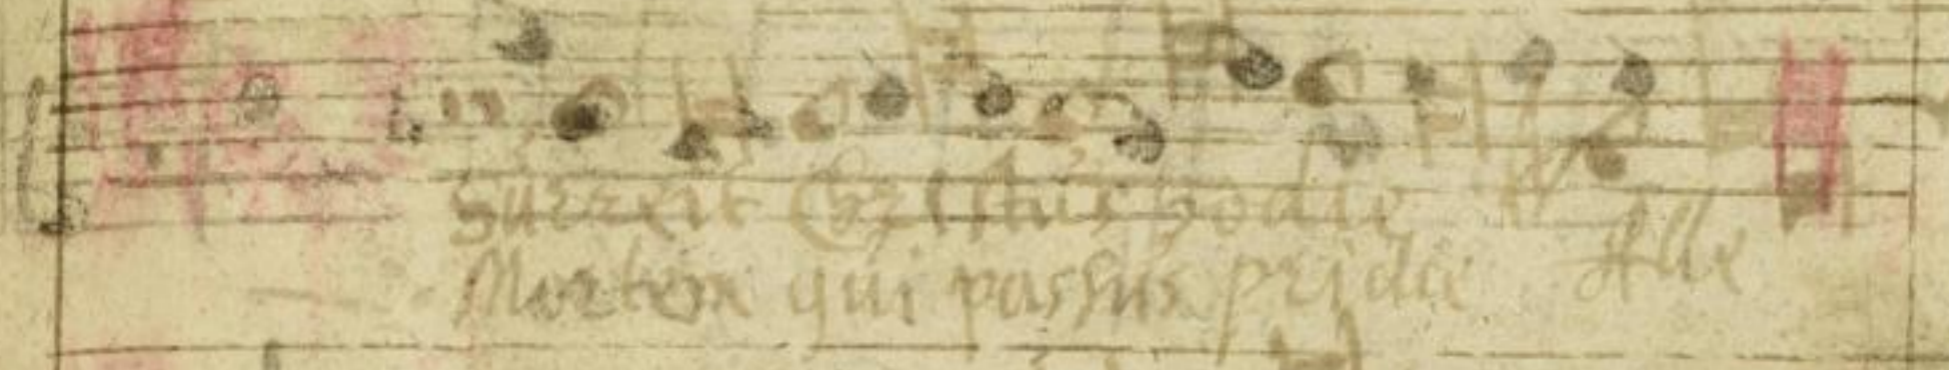 Surrexit Christus hodie Alle
Mortem qui passus pridie Alle